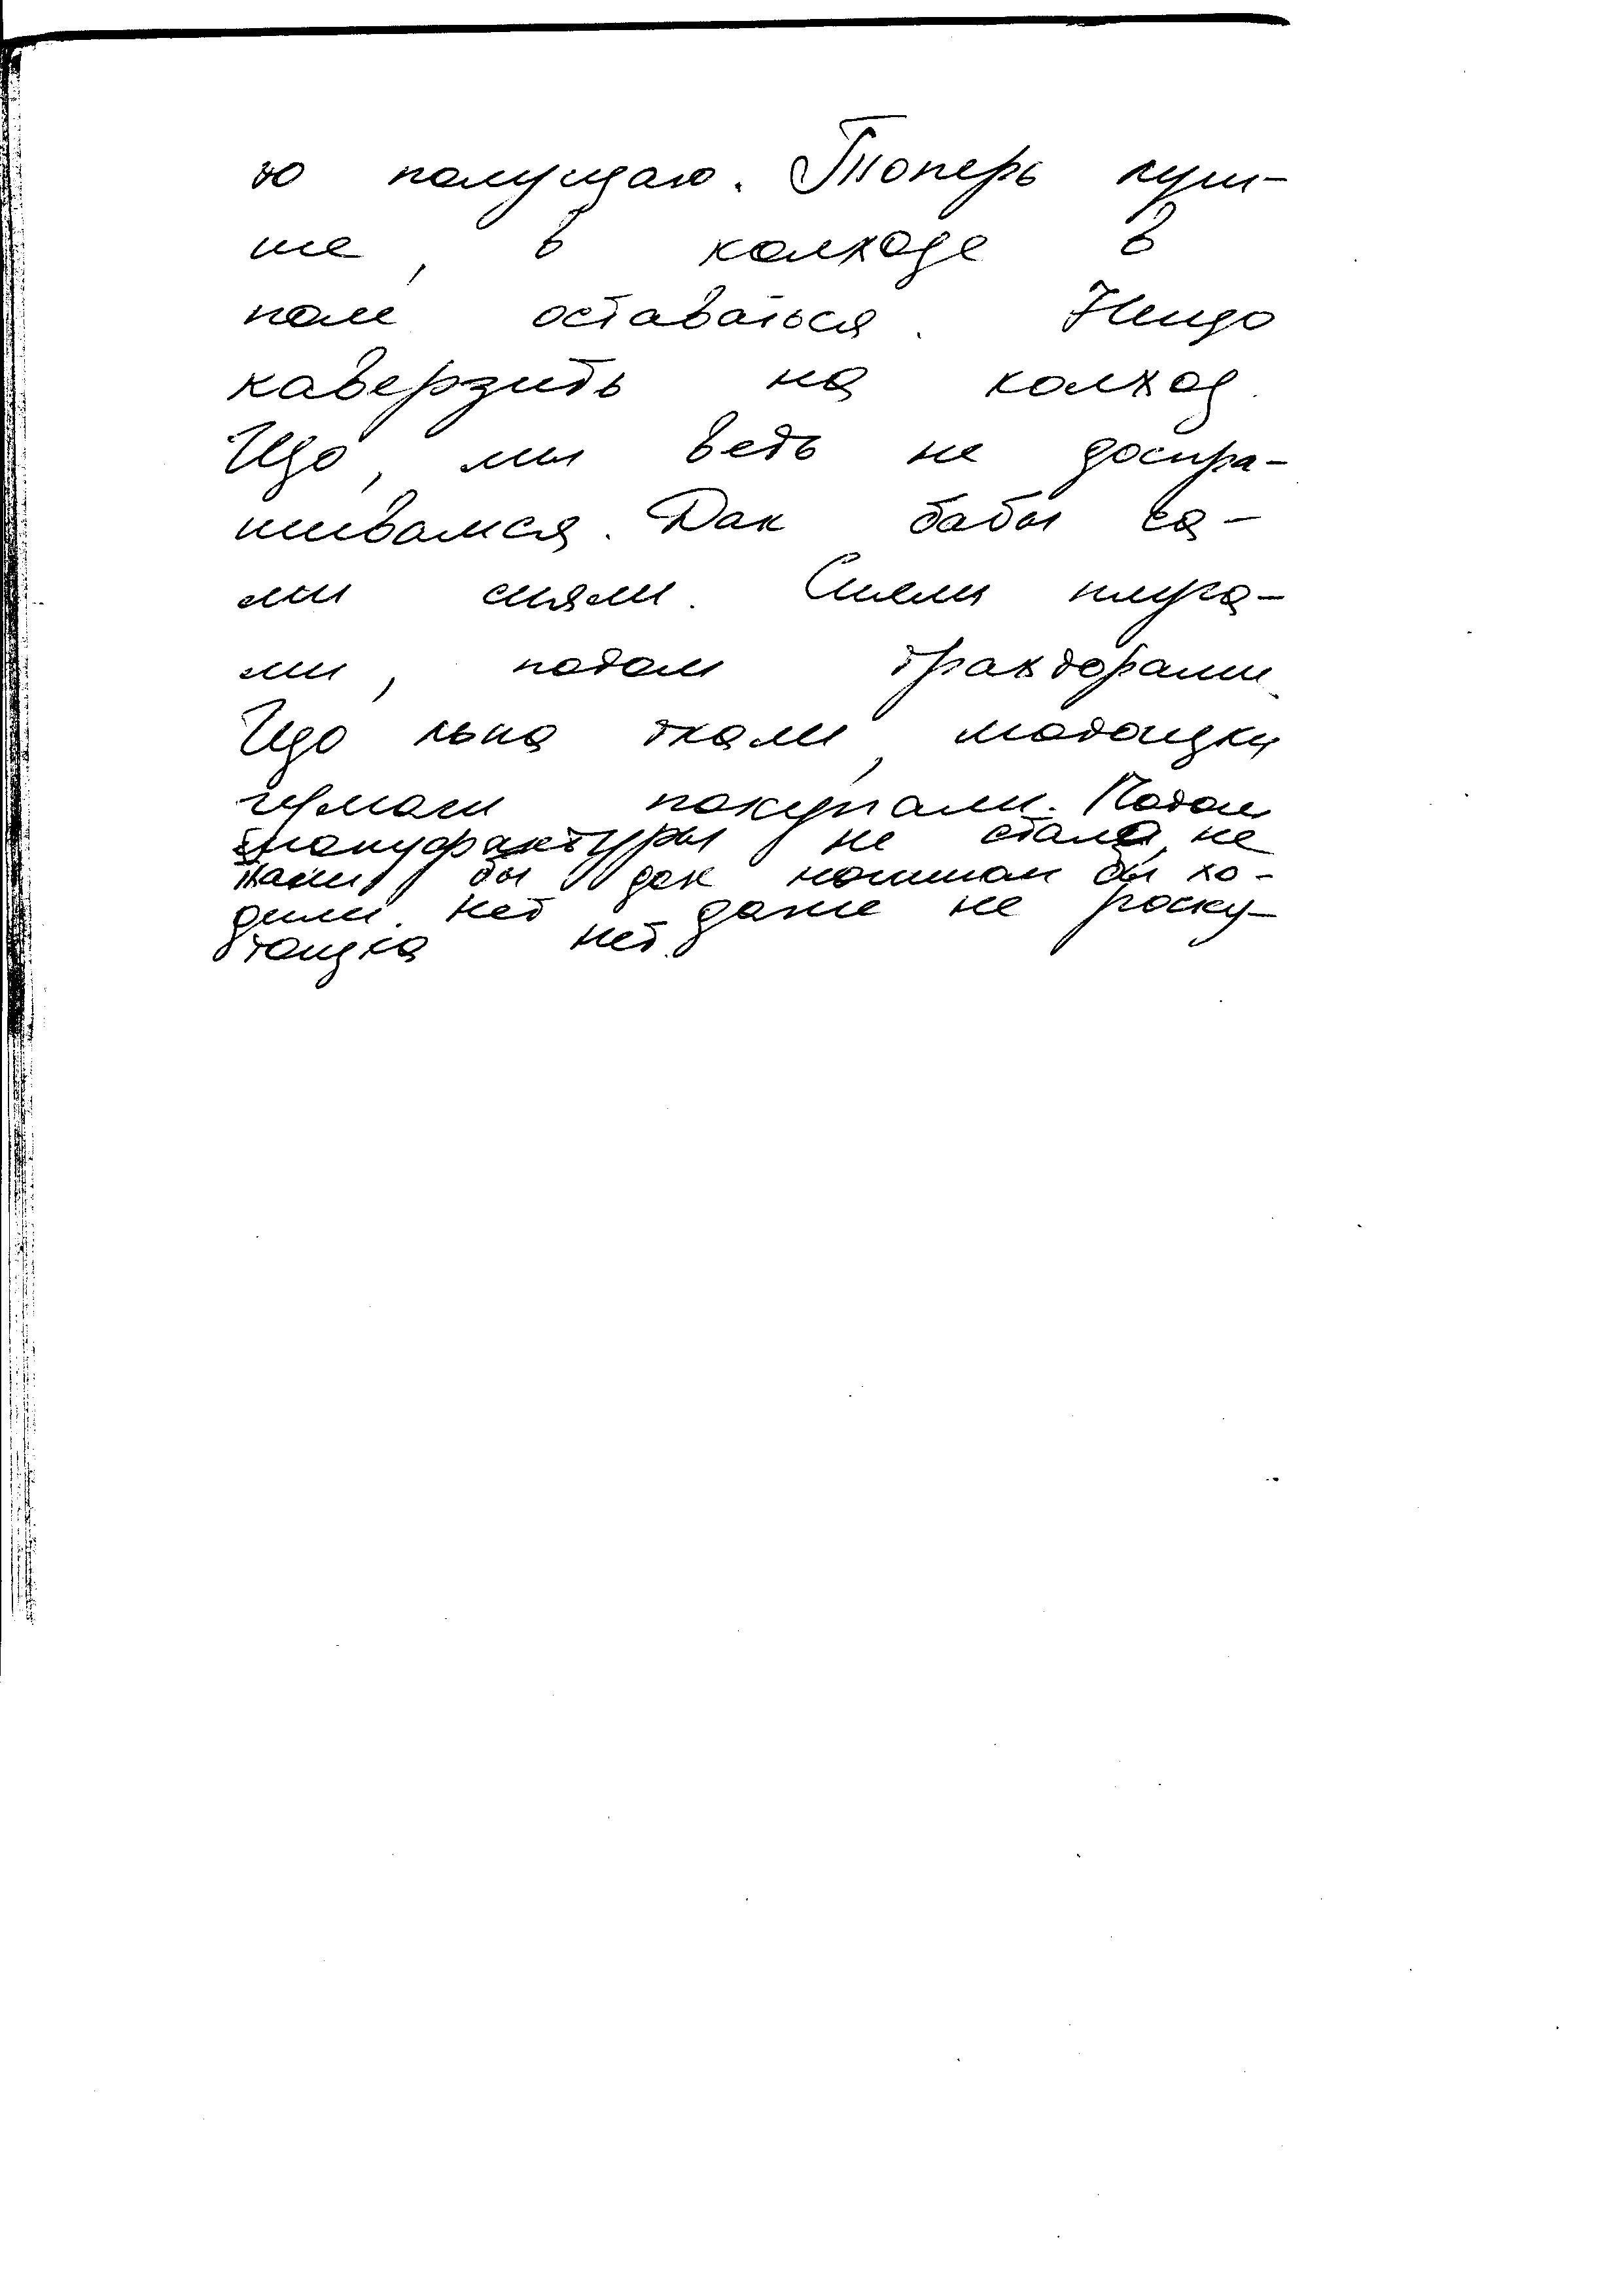 то полуцаю. Топерь луш-
ше, в колхозе в
поле оставаться. Ницо
каверзить на колхоз.
Цо, мы ведь не доспра-
шивамся. Дак бабы са-
ми сияли. Сияли плуга-
ми, потом трахторами.
Цо льна ткали, матоцки
цёмоги покупали. Потом
мануфактуры не стало, не
ткали бы дак нагишом бы хо-
дили. Нет даже не роску-
тоцка нет.